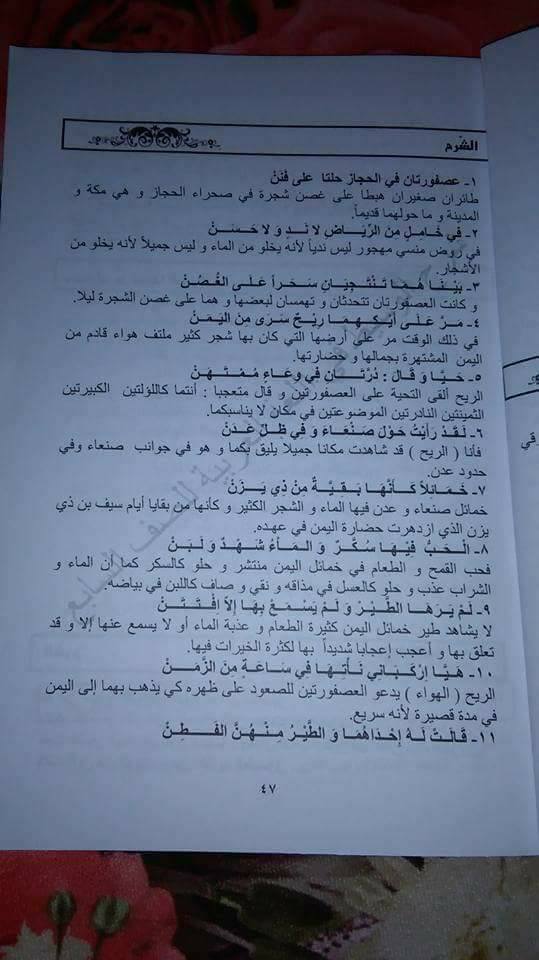 الشرح
١- عصفورتان في الحجاز حلتا على فَنَنْ
طائران صغيران هبطا على غصن شجرة في صحراء الحجاز و هي مكة و
المدينة و ما حولهما قديماً.
٢- فِي خَامِلٍ مِنَ الرِّيَاضِ لَا نَدٍ وَ لَا حَسَنْ
في روض منسي مهجور ليس ندياً لأنه يخلو من الماء و ليس جميلاً لأنه يخلو من
الأشجار.
٣- بَيْنَا هُمَا تَنْتَجِيَانِ سَحَراً عَلَى الْغُصُنْ
و كانت العصفورتان تتحدثان و تهمسان لبعضها و هما على غصن الشجرة ليلا.
٤- مَرَّ عَلَى أَيْكِهِمَا رِيْحٌ سَرَى مِنَ الْيَمَنْ
في ذلك الوقت مر على أرضها التي كان بها شجر كثير ملتف هواء قادم من
اليمن المشتهرة بجمالها و حضارتها.
٥- حَيَّا وَ قَالَ : دُرَّتَانِ فِي وِعَاءٍ مُمْتَهَنْ
الريح ألقى التحية على العصفورتين و قال متعجبا : أنتما كاللؤلتين الكبيرتين
الثمينتين النادرتين الموضوعتين في مكان لا يناسبكما.
٦- لَقَدْ رَأَيْتُ حَوْلَ صَنْعَاءَ وَ فِي ظِلِّ عَدَنْ
فأنا ( الريح ) قد شاهدت مكانا جميلا يليق بكما و هو في جوانب صنعاء وفي
حدود عدن.
٧- خَمَائِلاً كَأَنَّهَا بَقِيَّةٌ مِنْ ذِي يَزَنْ
خمائل صنعاء و عدن فيها الماء و الشجر الكثير و كأنها من بقايا أيام سيف بن ذي
يزن الذي ازدهرت حضارة اليمن في عهده.
٨- الْحَبُّ فِيْهَا سُكَّرٌ وَ الْمَاءُ شَهْدٌ وَ لَبَنْ
فحب القمح و الطعام في خمائل اليمن منتشر و حلو كالسكر كما أن الماء و
الشراب عذب و حلو كالعسل في مذاقه و نقي و صاف كاللبن في بياضه.
٩- لَمْ يَرَهَا الطَّيْرُ وَ لَمْ يَسْمَعْ بِهَا إِلَّا افْتَتَنْ
لا يشاهد طير خمائل اليمن كثيرة الطعام و عذبة الماء أو لا يسمع عنها إلا و قد
تعلق بها و أعجب إعجابا شديداً بها لكثرة الخيرات فيها.
١٠- هَيَّا ارْكَبَانِي نَأْتِهَا فِي سَاعَةٍ مِنَ الزَّمَنْ
الريح ( الهواء ) يدعو العصفورتين للصعود على ظهره كي يذهب بهما إلى اليمن
في مدة قصيرة لأنه سريع.
١١- قَالَتْ لَهُ إِحْدَاهُمَا وَ الطَّيْرُ مِنْهُنَّ الْفَطِنْ
٤٧